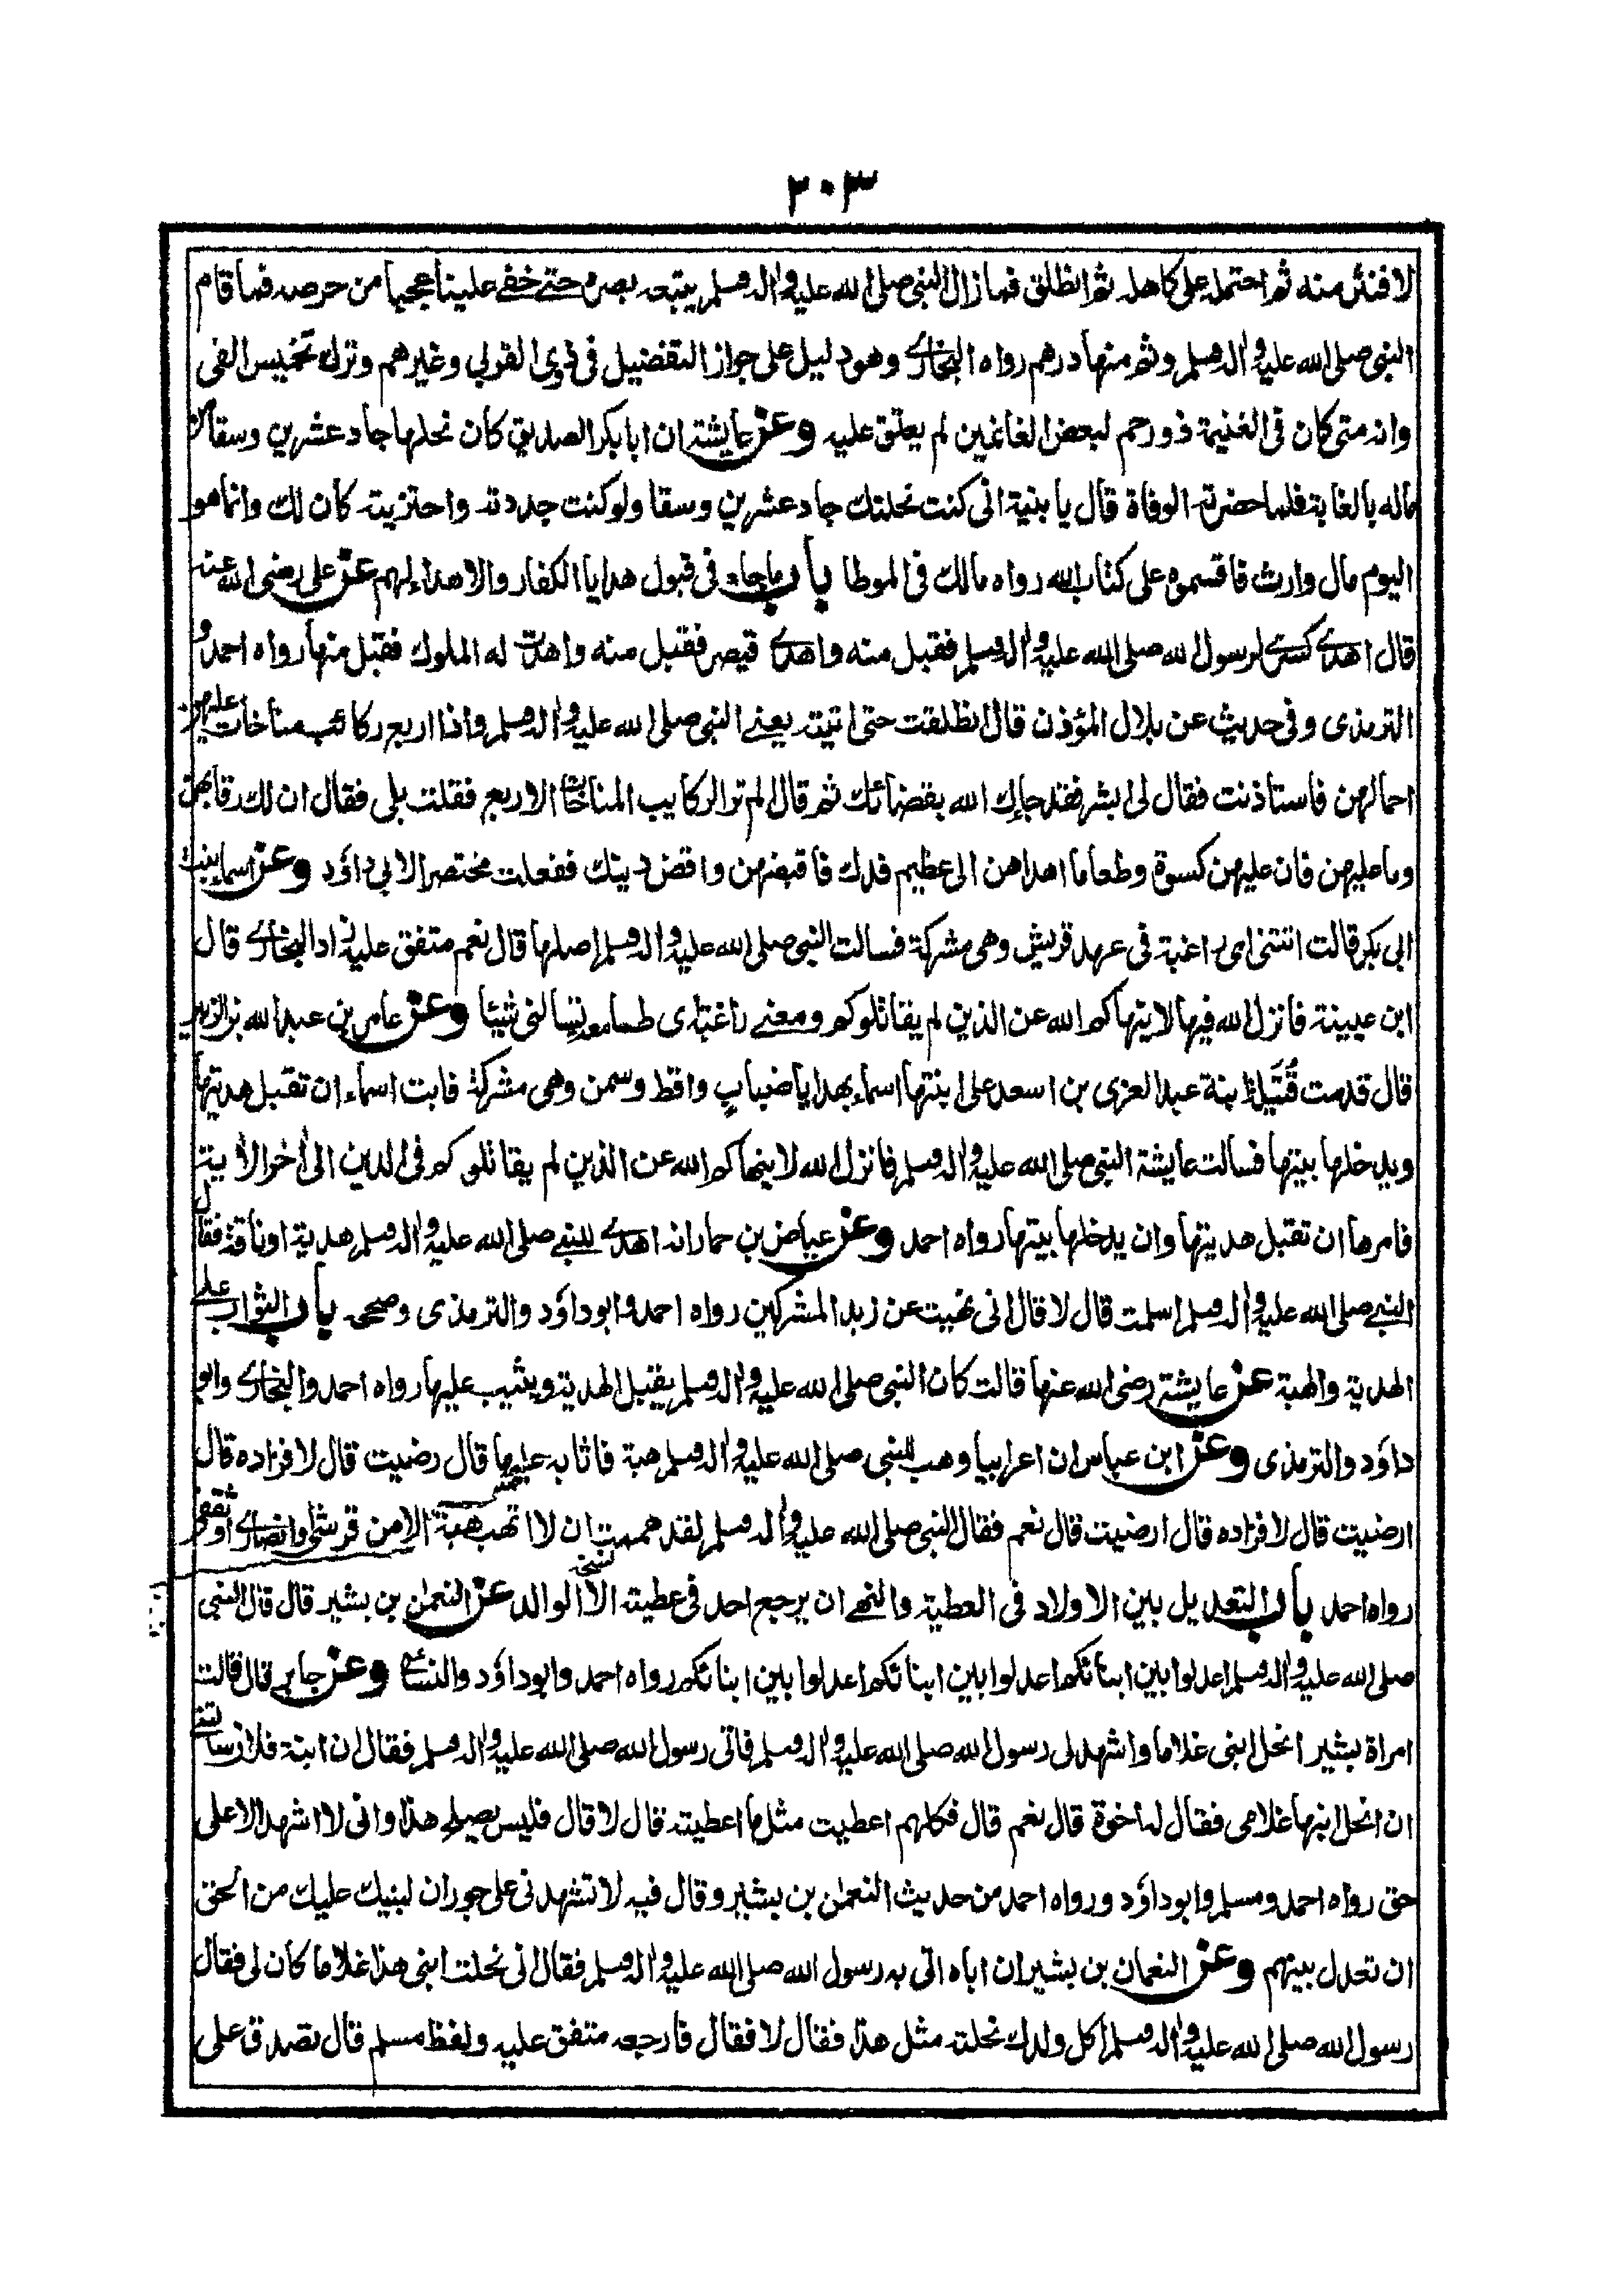 ٢٠٣
لا فنثر منه ثم احتمله على كاهله ثم انطلق فما زال النبي صلى الله عليه واله وسلم يتبعه بصره حتى خفى علينا عجبا من حرصه فما قام
النبي صلى الله عليه واله وسلم وثم منها درهم رواه البخاري وهو دليل على جواز التفضيل فى ذوى القربى وغيرهم وترك تخميس الفى
وانه متى كان فى الغنيمة ذو رحم لبعض الغانمين لم يعتق عليه وعن عايشة ان ابا بكر الصديق كان نحلها جاد عشرين وسقا من
ماله بالغابة فلما حضرته الوفاة قال يا بنية انى كنت نحلتك جاد عشرين وسقا ولو كنت جددته واحتزيته كان لك وانما هو
اليوم مال وارث فاقسموه على كتاب الله رواه مالك فى الموطا باب ماجاء فى قبول هدايا الكفار والاهداء لهم عن على رضى الله عنه
قال اهدى كسرى لرسول الله صلى الله عليه واله وسلم فقبل منه واهدى قيصر فقبل منه واهدت له الملوك فقبل منها رواه احمد و
الترمذى وفى حديث عن بلال المؤذن قال انطلقت حتى اتيته يعنى النبي صلى الله عليه واله وسلم واذا اربع ركائب مناخات عليهن
احمالهن فاستاذنت فقال لى ابشر فقد جاءك الله بقضائك ثم قال الم تر الركايب المناخات الاربع فقلت بلى فقال ان لك رقابهن
وما عليهن فان عليهن كسوة وطعاما اهداهن الى عظيم فدك فاقبضهن واقض دينك ففعلت مختصر الابي داؤد وعن اسماء بنت
ابى بكر قالت اتتنى امى راغبة فى عهد قريش وهى مشركة فسالت النبي صلى الله عليه واله وسلم اصلها قال نعم متفق عليه زاد البخاري قال
ابن عيينة فانزل الله فيها لا ينهاكم الله عن الذين لم يقاتلوكم ومعنى راغبة اى طامعة تسالنى شيئا وعن عامر بن عبد الله بن الزبير
قال قدمت قُتَيلة ابنة عبد العزى بن اسعد على ابنتها اسماء بهدايا ضبابٍ واقط وسمن وهى مشركة فابت اسماء ان تقبل هديتها
ويدخلها بيتها فسالت عايشة النبي صلى الله عليه واله وسلم فانزل الله لا ينهاكم الله عن الذين لم يقاتلوكم فى الدين الى أخر الأية
فامرها ان تقبل هديتها وان يدخلها بيتها رواه احمد وعن عياض بن حمار انه اهدى للنبي صلى الله عليه واله وسلم هدية او ناقة فقال
النبي صلى الله عليه واله وسلم اسلمت قال لا قال انى نهيت عن زبد المشركين رواه احمد وابو داؤد والترمذى وصححه باب الثواب على
الهدية والهبة عن عايشة رضى الله عنها قالت كان النبي صلى الله عليه واله وسلم يقبل الهدية ويثيب عليها رواه احمد والبخاري وابو
داؤد والترمذى وعن ابن عباس ان اعرابيا وهب للنبي صلى الله عليه واله وسلم هبة فاثابه عليها قال رضيت قال لا فزاده قال
ارضيت قال لا فزاده قال ارضيت قال نعم فقال النبي صلى الله عليه واله وسلم لقد هممت ان لا اتهب هبة الا من قرشى او انصارى او ثقفى
رواه احمد باب التعديل بين الاولاد فى العطية والنهى ان يرجع احد فى عطيته الا الوالد عن النعمٰن بن بشير قال قال النبي
صلى الله عليه واله وسلم اعدلوا بين ابنائكم اعدلوا بين ابنائكم اعدلوا بين ابنائكم رواه احمد وابو داؤد والنسائى وعن جابر قال قالت
امراة بشير انحل ابنى غلاما واشهد لى رسول الله صلى الله عليه واله وسلم فاتى رسول الله صلى الله عليه واله وسلم فقال ان ابنة فلان سالتنى
ان انحل ابنها غلامى فقال له اخوة قال نعم قال فكلهم اعطيت مثل ما اعطيته قال لا قال فليس يصلح هذا وانى لا اشهد الا على
حق رواه احمد ومسلم وابو داؤد ورواه احمد من حديث النعمٰن بن بشير وقال فيه لا تشهدنى على جور ان لبنيك عليك من الحق
ان تعدل بينهم وعن النعمان بن بشير ان اباه اتى به رسول الله صلى الله عليه واله وسلم فقال انى نحلت ابنى هذا غلاما كان لى فقال
رسول الله صلى الله عليه واله وسلم اكل ولدك نحلته مثل هذا فقال لا فقال فارجعه متفق عليه ولفظ مسلم قال تصدق على